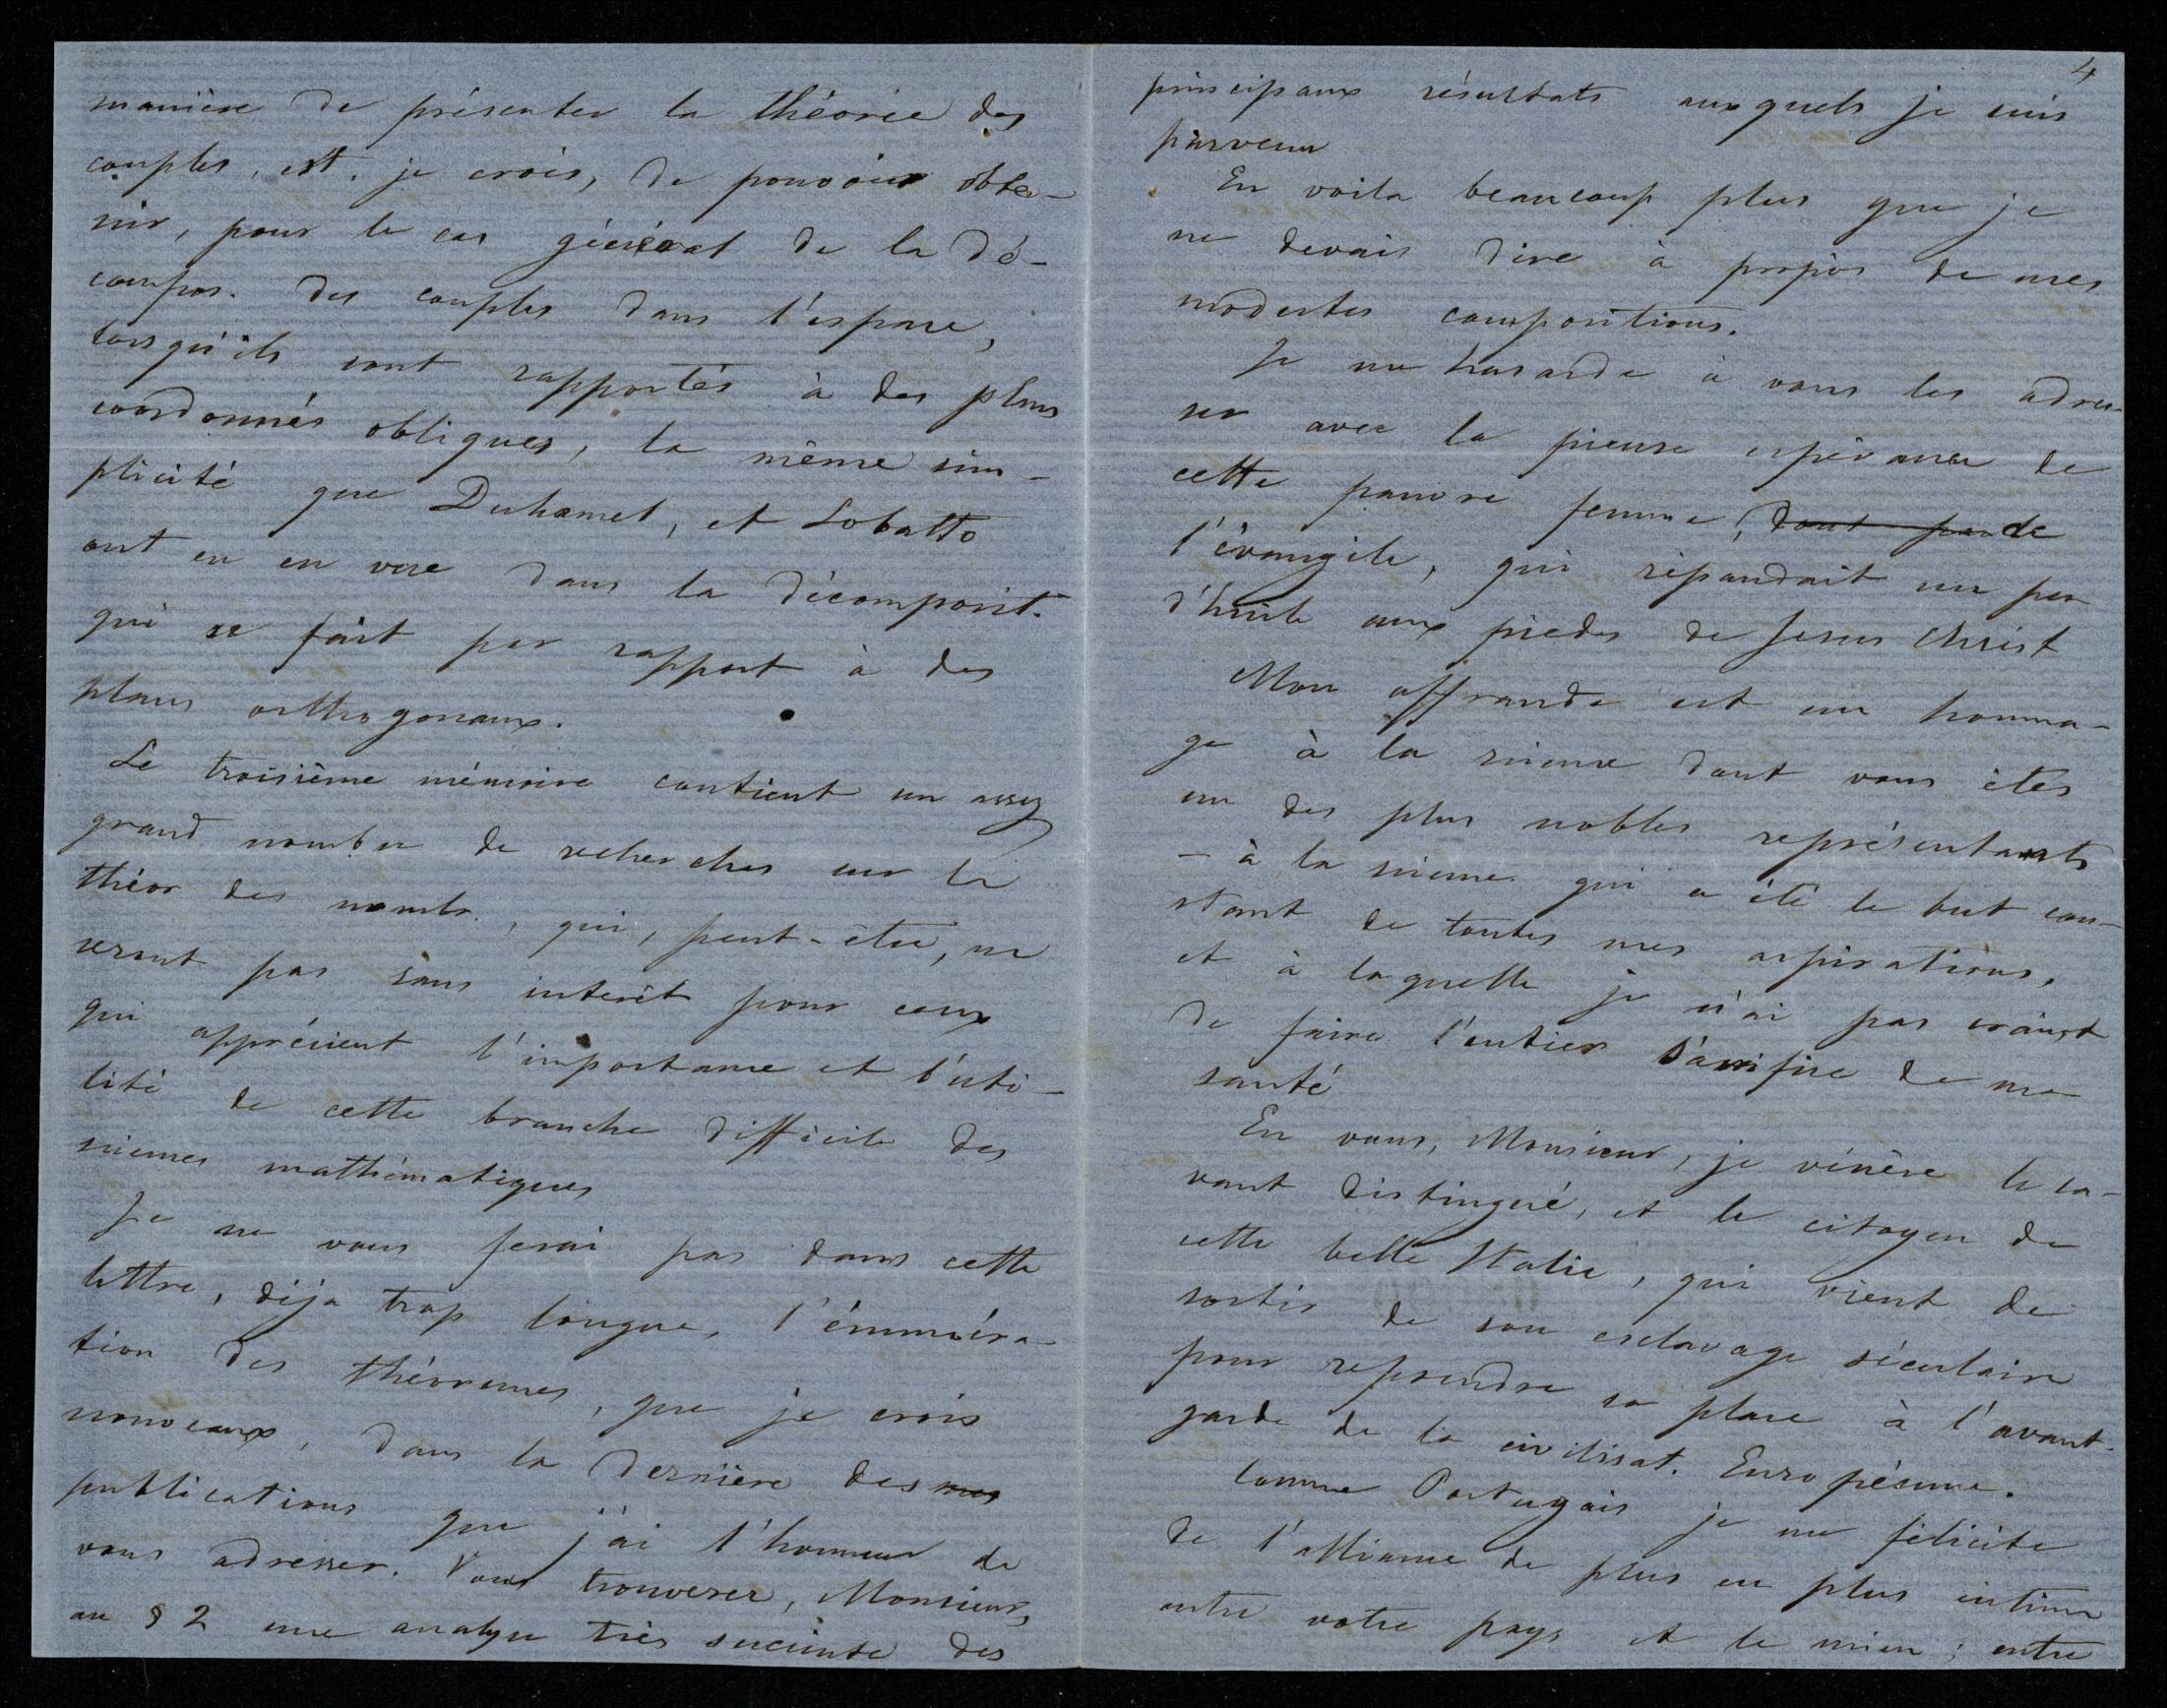 manière de présenter la théorie des
couples, est, je crois, de pouvoir obte-
nir, pour le cas général de la dé-
compos. des couples dans l'espace,
lorsqu'ils sont rapportés à des plans
coordonnés obliques, la même sim-
plicité que Duhamel, et Lobatto
ont eu en vue dans la décomposit.
qui se fait par rapport à des
plans orthogonaux.
Le troisième mémoire contient un assez
grand nombre de recherches sur la
théor des nombr., qui, peut-être, ne
seront pas sans interêt pour ceux
qui apprécient l'importance et l'uti-
lité de cette branche difficile des
sciences mathématiques
Je ne vous ferai pas dans cette
lettre, déja trop longue, l'énuméra-
tion des théoremes, que je crois
nouveaux, dans la dernière des mes
publications que j'ai l'honneur de
vous adresser. Vous trouverez, Monsieur,
au § 2 une analyse très succinte des
4
principaux résultats auxquels je suis
parvenu
En voila beaucoup plus que je
ne devais dire à propos de mes
modestes compositions.
Je me hasarde à vous les adres-
ser avec la pieuse espérance de
cette pauvre femme, dont de
l'évangile, qui répandait un peu
d'huile aux pieds de Jesus Christ
Mon offrande est un homma-
ge à la science dont vous êtes
un des plus nobles représentants
- à la science qui a été le but con-
stant de toutes mes aspirations,
et à laquelle je n'ai pas craint
de faire l'entier sacrifice de ma
santé
En vous, Monsieur, je vénère le sa-
vant distingué, et le citoyen de
cette belle Italie, qui vient de
sortir de son esclavage séculaire
pour reprendre sa place à l'avant-
garde de la civilisat. Européenne.
Comme Portugais je me félicite
de l'alliance de plus en plus intime
entre votre pays et le mien; entre